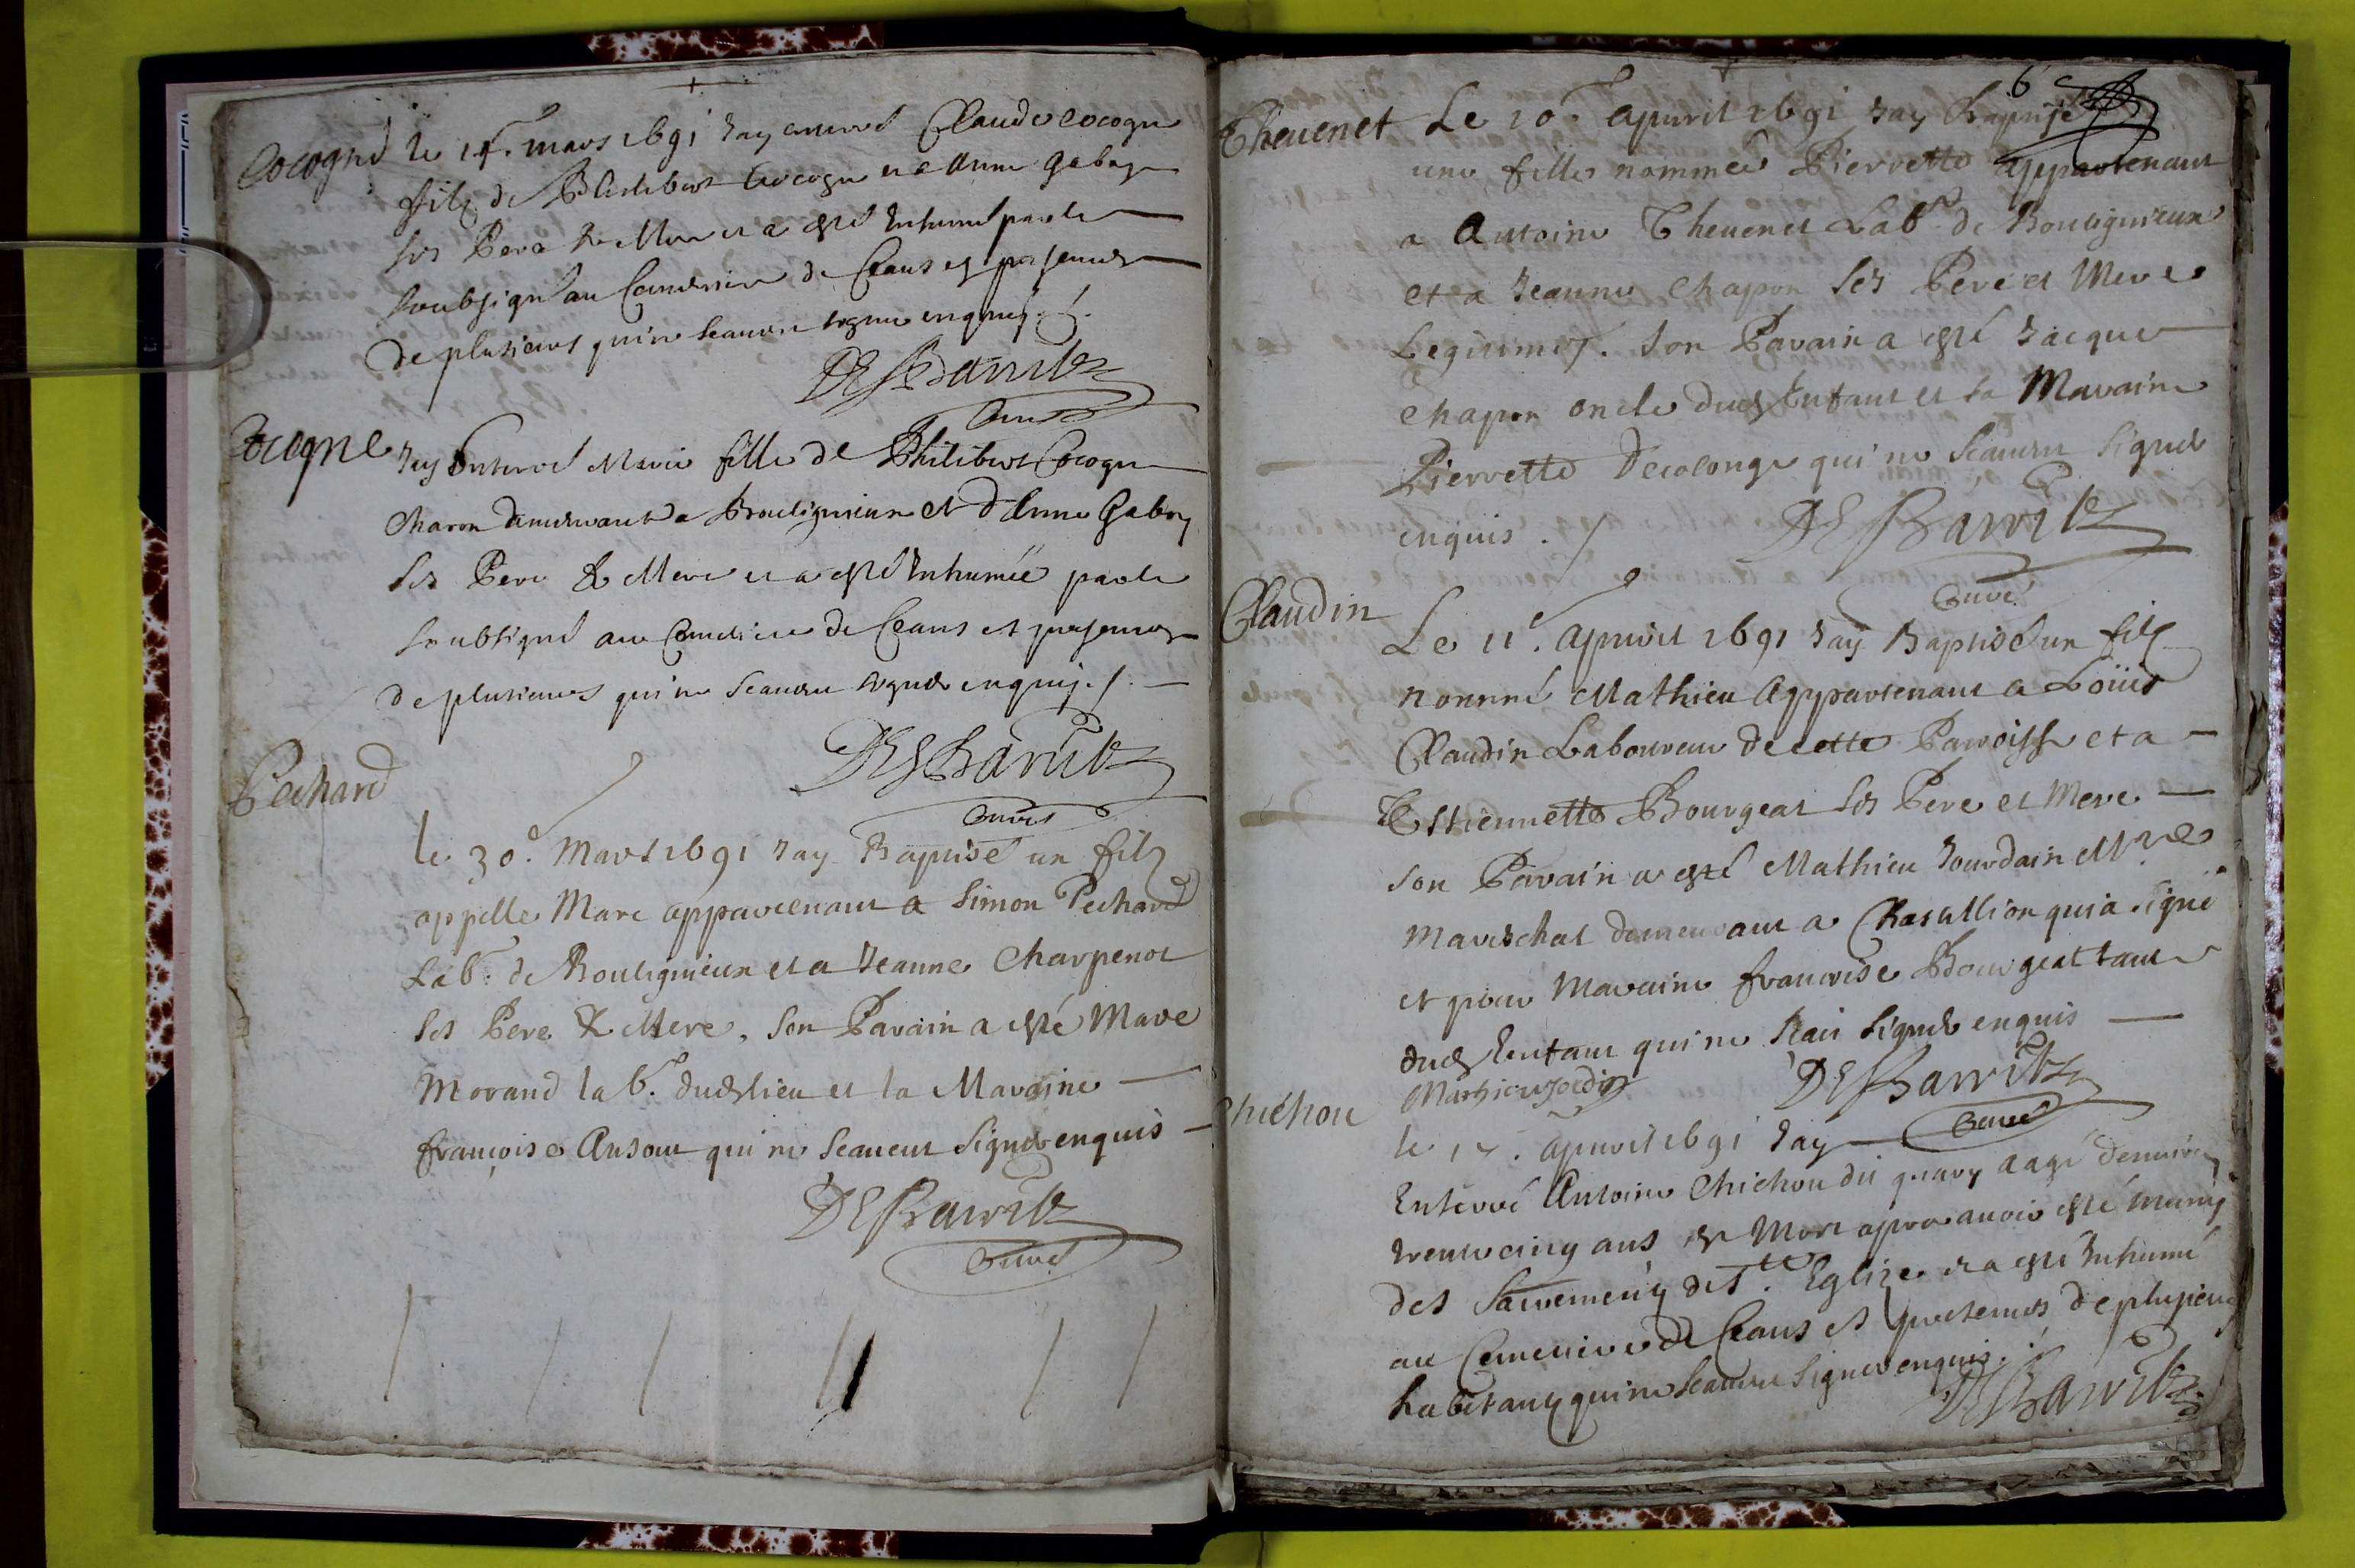 Cocogne
le 14e. mars 1691 Jay enterré Claude cocogne
filz de Philibert Cocogne et a Anne Gabry
ses Pere & Mere et a esté Inhumé par le
soubsigné au Cemetiere de Ceans es presences
de plusieurs qui ne scauent signer enquis ./.
DESBarrit
Curé
Cocogne
Jay Enterré Marie fille de Philibert Cocogne
charon demeurant a Bouligneux et d'Anne Gabry
ses Pere & Mere et a esté Inhumée par le
soubsigné au Cemetiere de Ceans et presences
de plusieurs qui ne scauent signer enquis ./.
DESBarrit
Curé
Pechard
le 30e. Mars 1691 Jay Baptisé un filz
appellé Marc appartenant a Simon Pechard
Lab.r de Bouligneux et a Jeanne Charpenot
ses Pere & Mere, son Parain a esté Marc
Morand lab.r dud lieu et la Maraine
francoise Ansout qui ne scauent signer enquis
DESBarrit
Curé
6
Theuenet
Le 10e apuril 1691 Jay Baptisé
une fille nommée Pierrette appartenant
a Antoine Theuenet Lab.r de Bouligneux
et a Jeanne Chapon ses Pere et Mere
Legitimes. son Parain a esté Jacque
Chapon oncle dud Enfant et sa Maraine
Pierrette Decolonge qui ne scauent signer
enquis ./
DESBarrit
Curé
Claudin
Le 11e. apuril 1691 Jay Baptisé un filz
nommé Mathieu appartenant a Loüis
Claudin Laboureur de cette Paroisse et a
Estiennette Bourgeat ses Pere et Mere
son Parain a esté Mathieu Jourdain Mre
mareschal demeurant a Chatillion qui a signé
et pour Maraine francoise Bourgeat tante
dud Enfant qui ne scait signer enquis
Mathieu Jordin
DESBarrit
Curé
Chichou
le 1 . apuril 1691 Jay
Enterré Antoine Chichou dit quary aagé denuiron
trente cinq ans est Mort apres auoir esté muny
des Sacremens de Ste. Eglize et a esté Inhumé
au Cemetiere de Ceans es presences de plusieurs
habitans qui ne scauent signer enquis ./.
DESBarrit